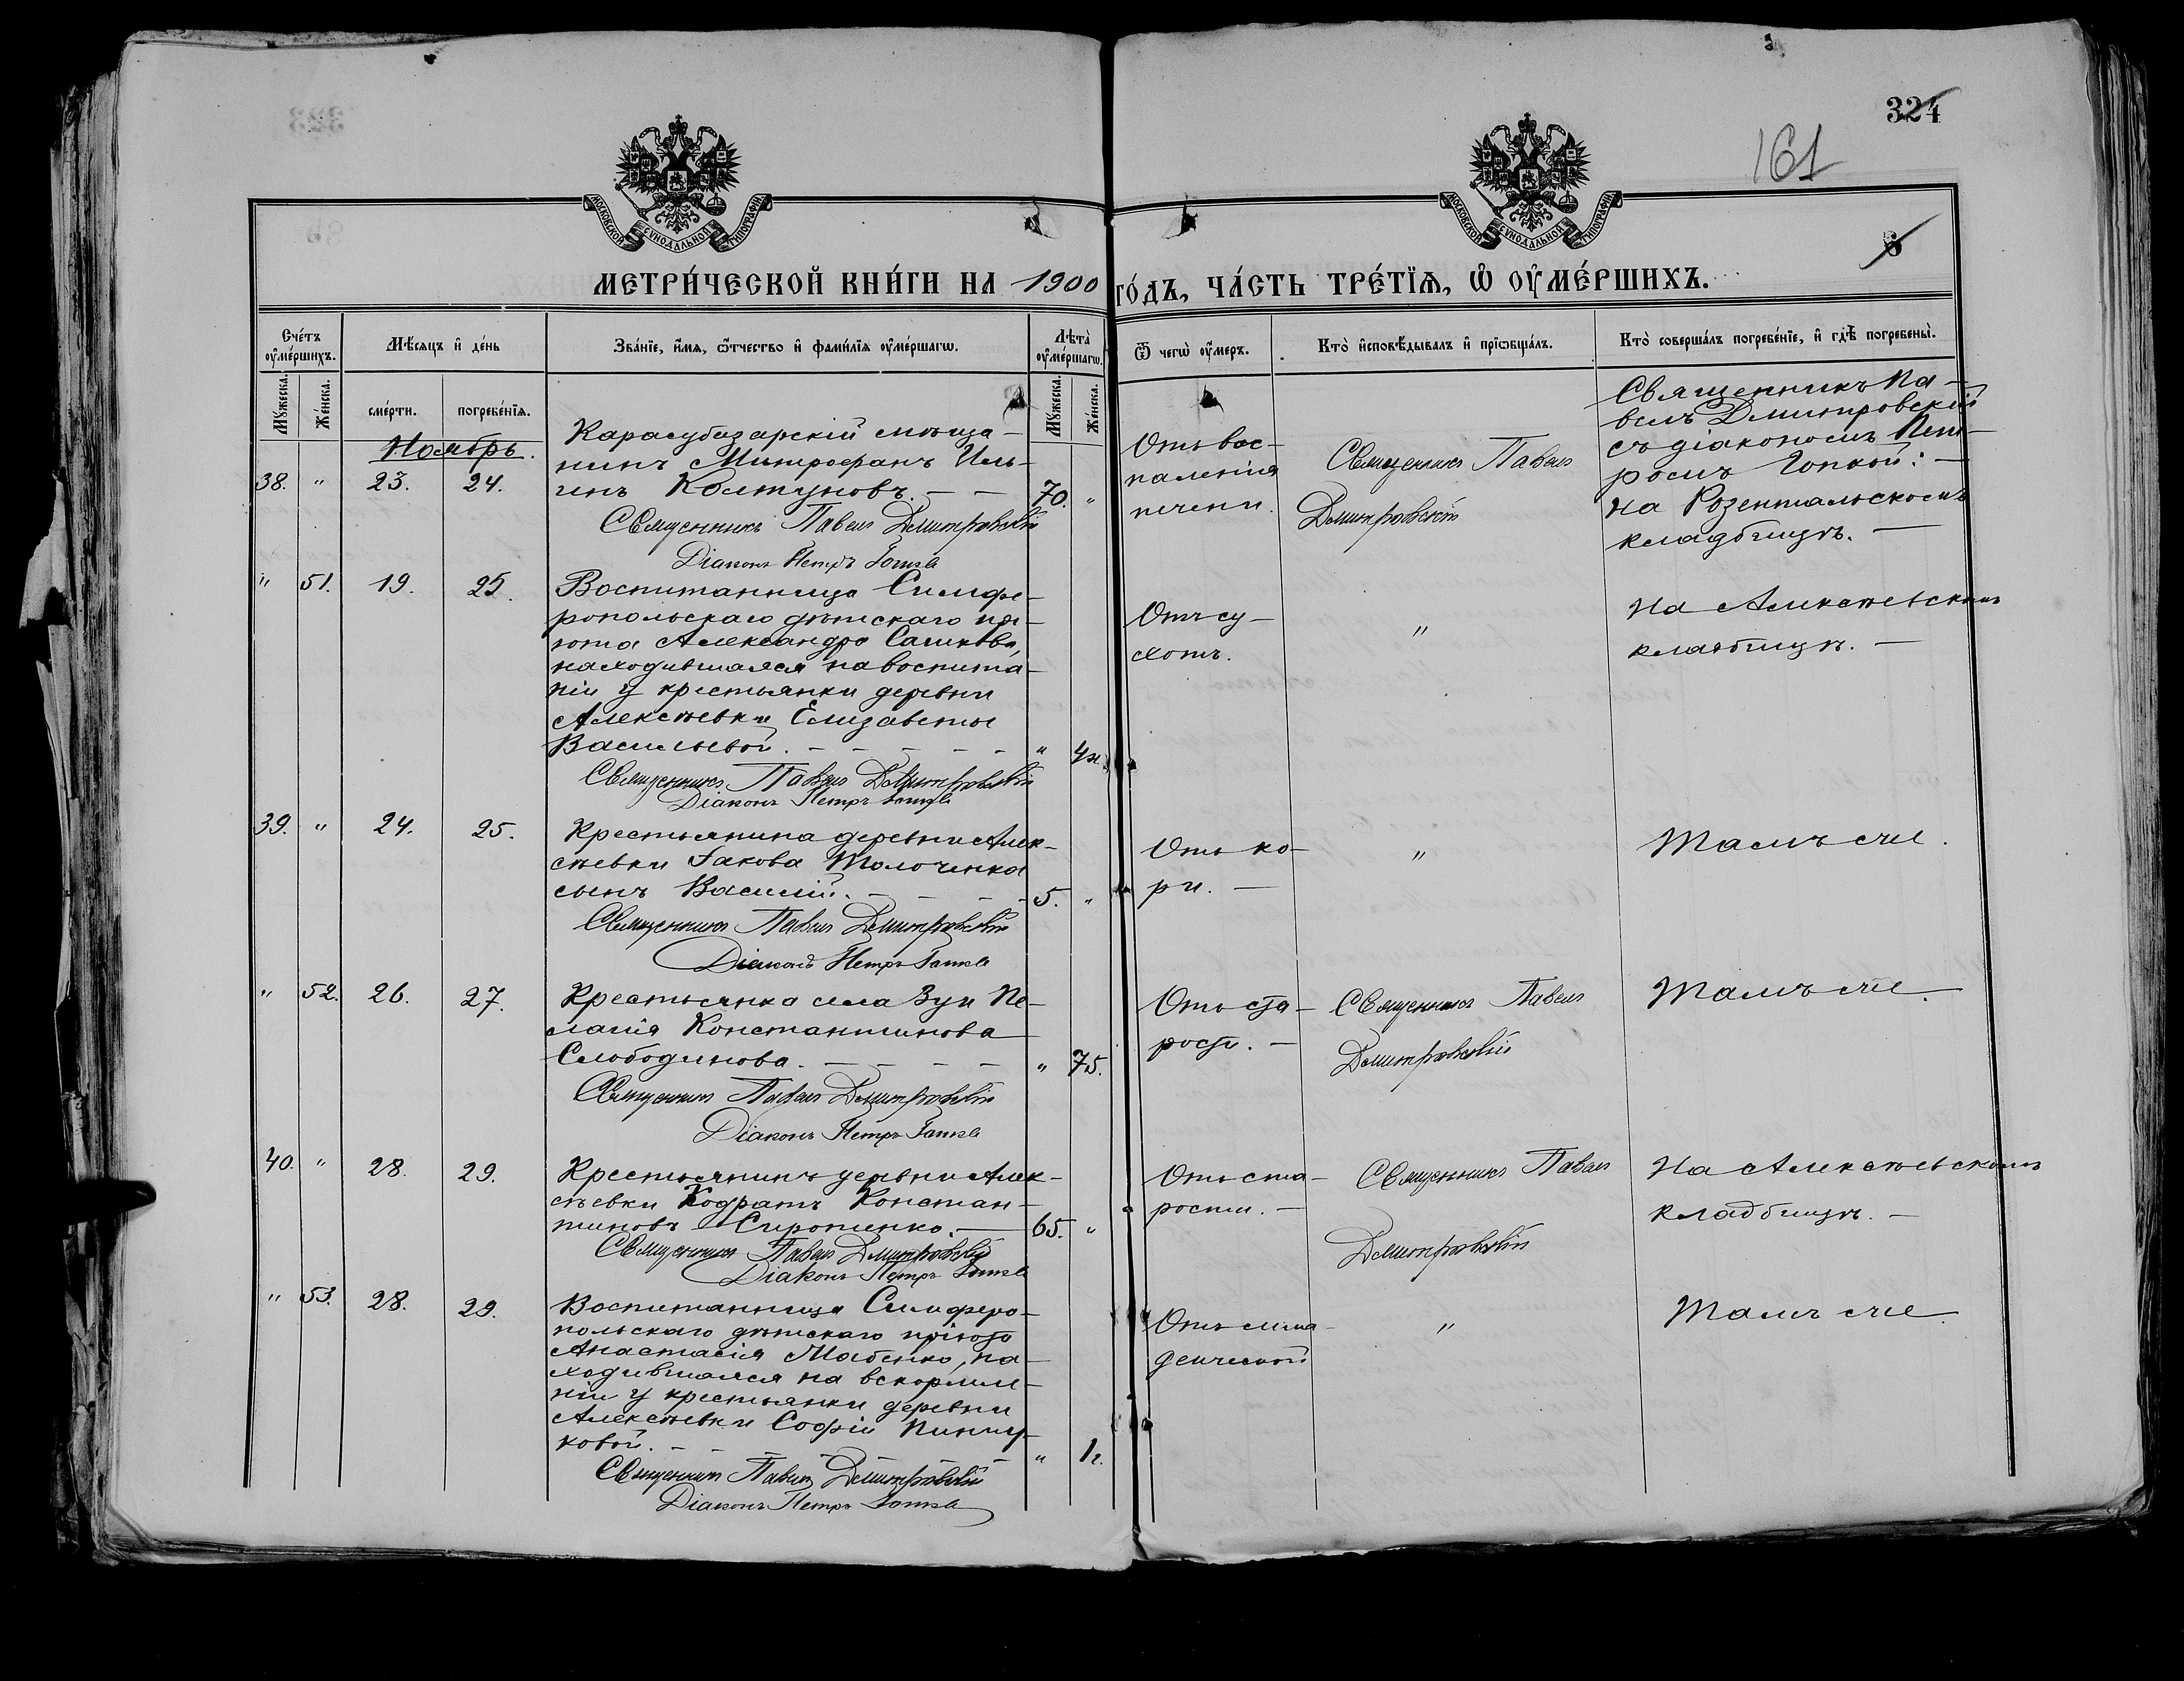 324
161
6
МОСКОВСКОЙ СѴНОДАЛЬНОЙ ТИПОГРАФІИ
МОСКОВСКОЙ СѴНОДАЛЬНОЙ ТИПОГРАФІИ
МЕТРИ́ЧЕСКОЙ КНИ́ГИ НА 1900 ГО́ДЪ, ЧА́СТЬ ТРЕ́ТЇѦ, Ѡ ОУ҆МЕ́РШИХЪ.
Сче́тъ оу҆ме́ршихъ.
Мѣ́сяцъ и҆ де́нь
Зва́нїе, и҆́мѧ, ѻ҆́тчество и҆ фами́лїѧ оу҆ме́ршагѡ.
Лѣ́та оу҆ме́ршагѡ.
Ѿ чегѡ̀ оу҆́меръ.
Кто̀ и҆сповѣ́дывалъ и҆ прїѡбща́лъ.
Кто̀ соверша́лъ погребе́нїе, и҆ гдѣ̀ погребены̀.
Мꙋ́жеска.
Же́нска.
сме́рти.
погребе́нїѧ.
Мꙋ́жеска.
Же́нска.
Ноябрь.
38. " 23. 24.
Карасубазарскій мѣща-
нинъ Митрофанъ Иль-
инъ Колтуновъ. — — 70. "
Священникъ Павелъ Димитровскій
Діаконъ Петръ Гопка
Отъ вос-
паленія
печени.
Священникъ Павелъ
Димитровскій
Священникъ Па-
велъ Димитровскій
съ діакономъ Пет-
ромъ Гопкой: —
на Розентальскомъ
кладбищѣ. —
" 51. 19. 25.
Воспитанница Симфе-
ропольскаго дѣтскаго прі-
юта Александра
находившаяся на воспита-
ніи у крестьянки деревни
Алексѣевки Елизаветы
Васильевой. — — — — — " 4 н.
Священникъ Павелъ Димитровскій
Діаконъ Петръ Гопка
Отъ су-
хотъ.
"
На Алексѣевскомъ
кладбищѣ. —
39. " 24. 25.
Крестьянина деревни Алек-
сѣевки Іакова Толоченка
сынъ Василій. — — — — 5. "
Священникъ Павелъ Димитровскій
Діаконъ Петръ Гопка
Отъ ко-
ри. —
"
Тамъ же.
" 52. 26. 27.
Крестьянка села Зуи Пе-
лагія Константинова
Слободинова. — — — — " 75.
Священникъ Павелъ Димитровскій
Діаконъ Петръ Гопка
Отъ ста-
рости. —
Священникъ Павелъ
Димитровскій
Тамъ же.
40. " 28. 29.
Крестьянинъ деревни Алек-
сѣевки Кодратъ Констан-
тиновъ Сиротенко. — 65. "
Священникъ Павелъ Димитровскій
Діаконъ Петръ Гопка
Отъ ста-
рости. —
Священникъ Павелъ
Димитровскій
На Алексѣевскомъ
кладбищѣ. —
" 53. 28. 29.
Воспитанница Симферо-
польскаго дѣтскаго пріюта
Анастасія Мабенко, на-
ходившаяся на вскормле-
ніи у крестьянки деревни
Алексѣевки Софіи
ковой. — — — — — " 1 г.
Священникъ Павелъ Димитровскій
Діаконъ Петръ Гопка
Отъ мла-
денческой
"
Тамъ же.